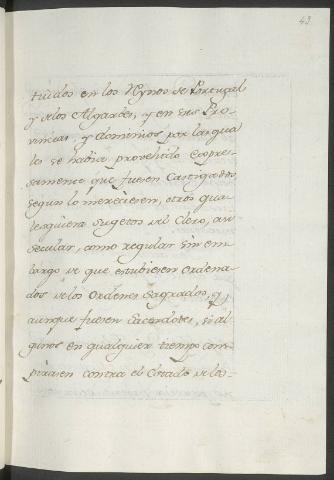 43.
tuidos en los Reynos de Portugal
y de los Algarbes, y en sus Pro-
vincias, y dominios, por las qua
les se habia prometido expre-
samente que fuesen Castigados
segun lo mereciesen, otros qua
lesquiera sugetos del Clero, asi
secular, como regular sin em
bargo de que estubiesen ordena
dos de los Ordenes Sagrados, y
aunque fuesen Sacerdotes, si al
gunos en qualquier tiempo cons
pirasen contra el Estado de los-